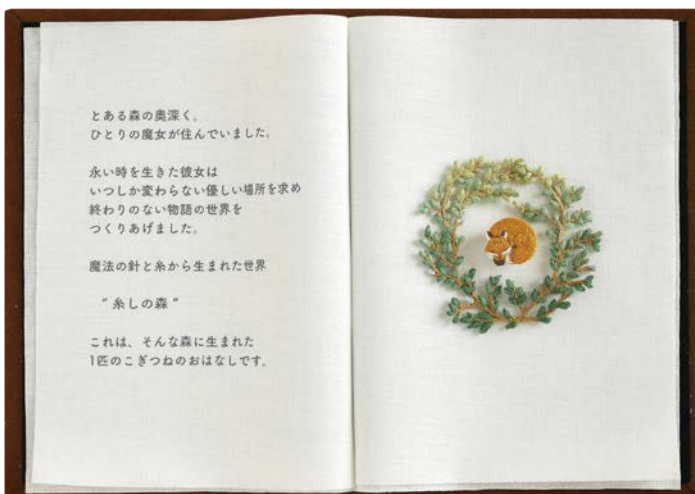 とある森の奥深く。
ひとりの魔女が住んでいました。
永い時を生きた彼女は
いつしか変わらない優しい場所を求め
終わりのない物語の世界を
つくりあげました。
魔法の針と糸から生まれた世界
”糸しの森”
これは、そんな森に生まれた
1匹のこぎつねのおはなしです。